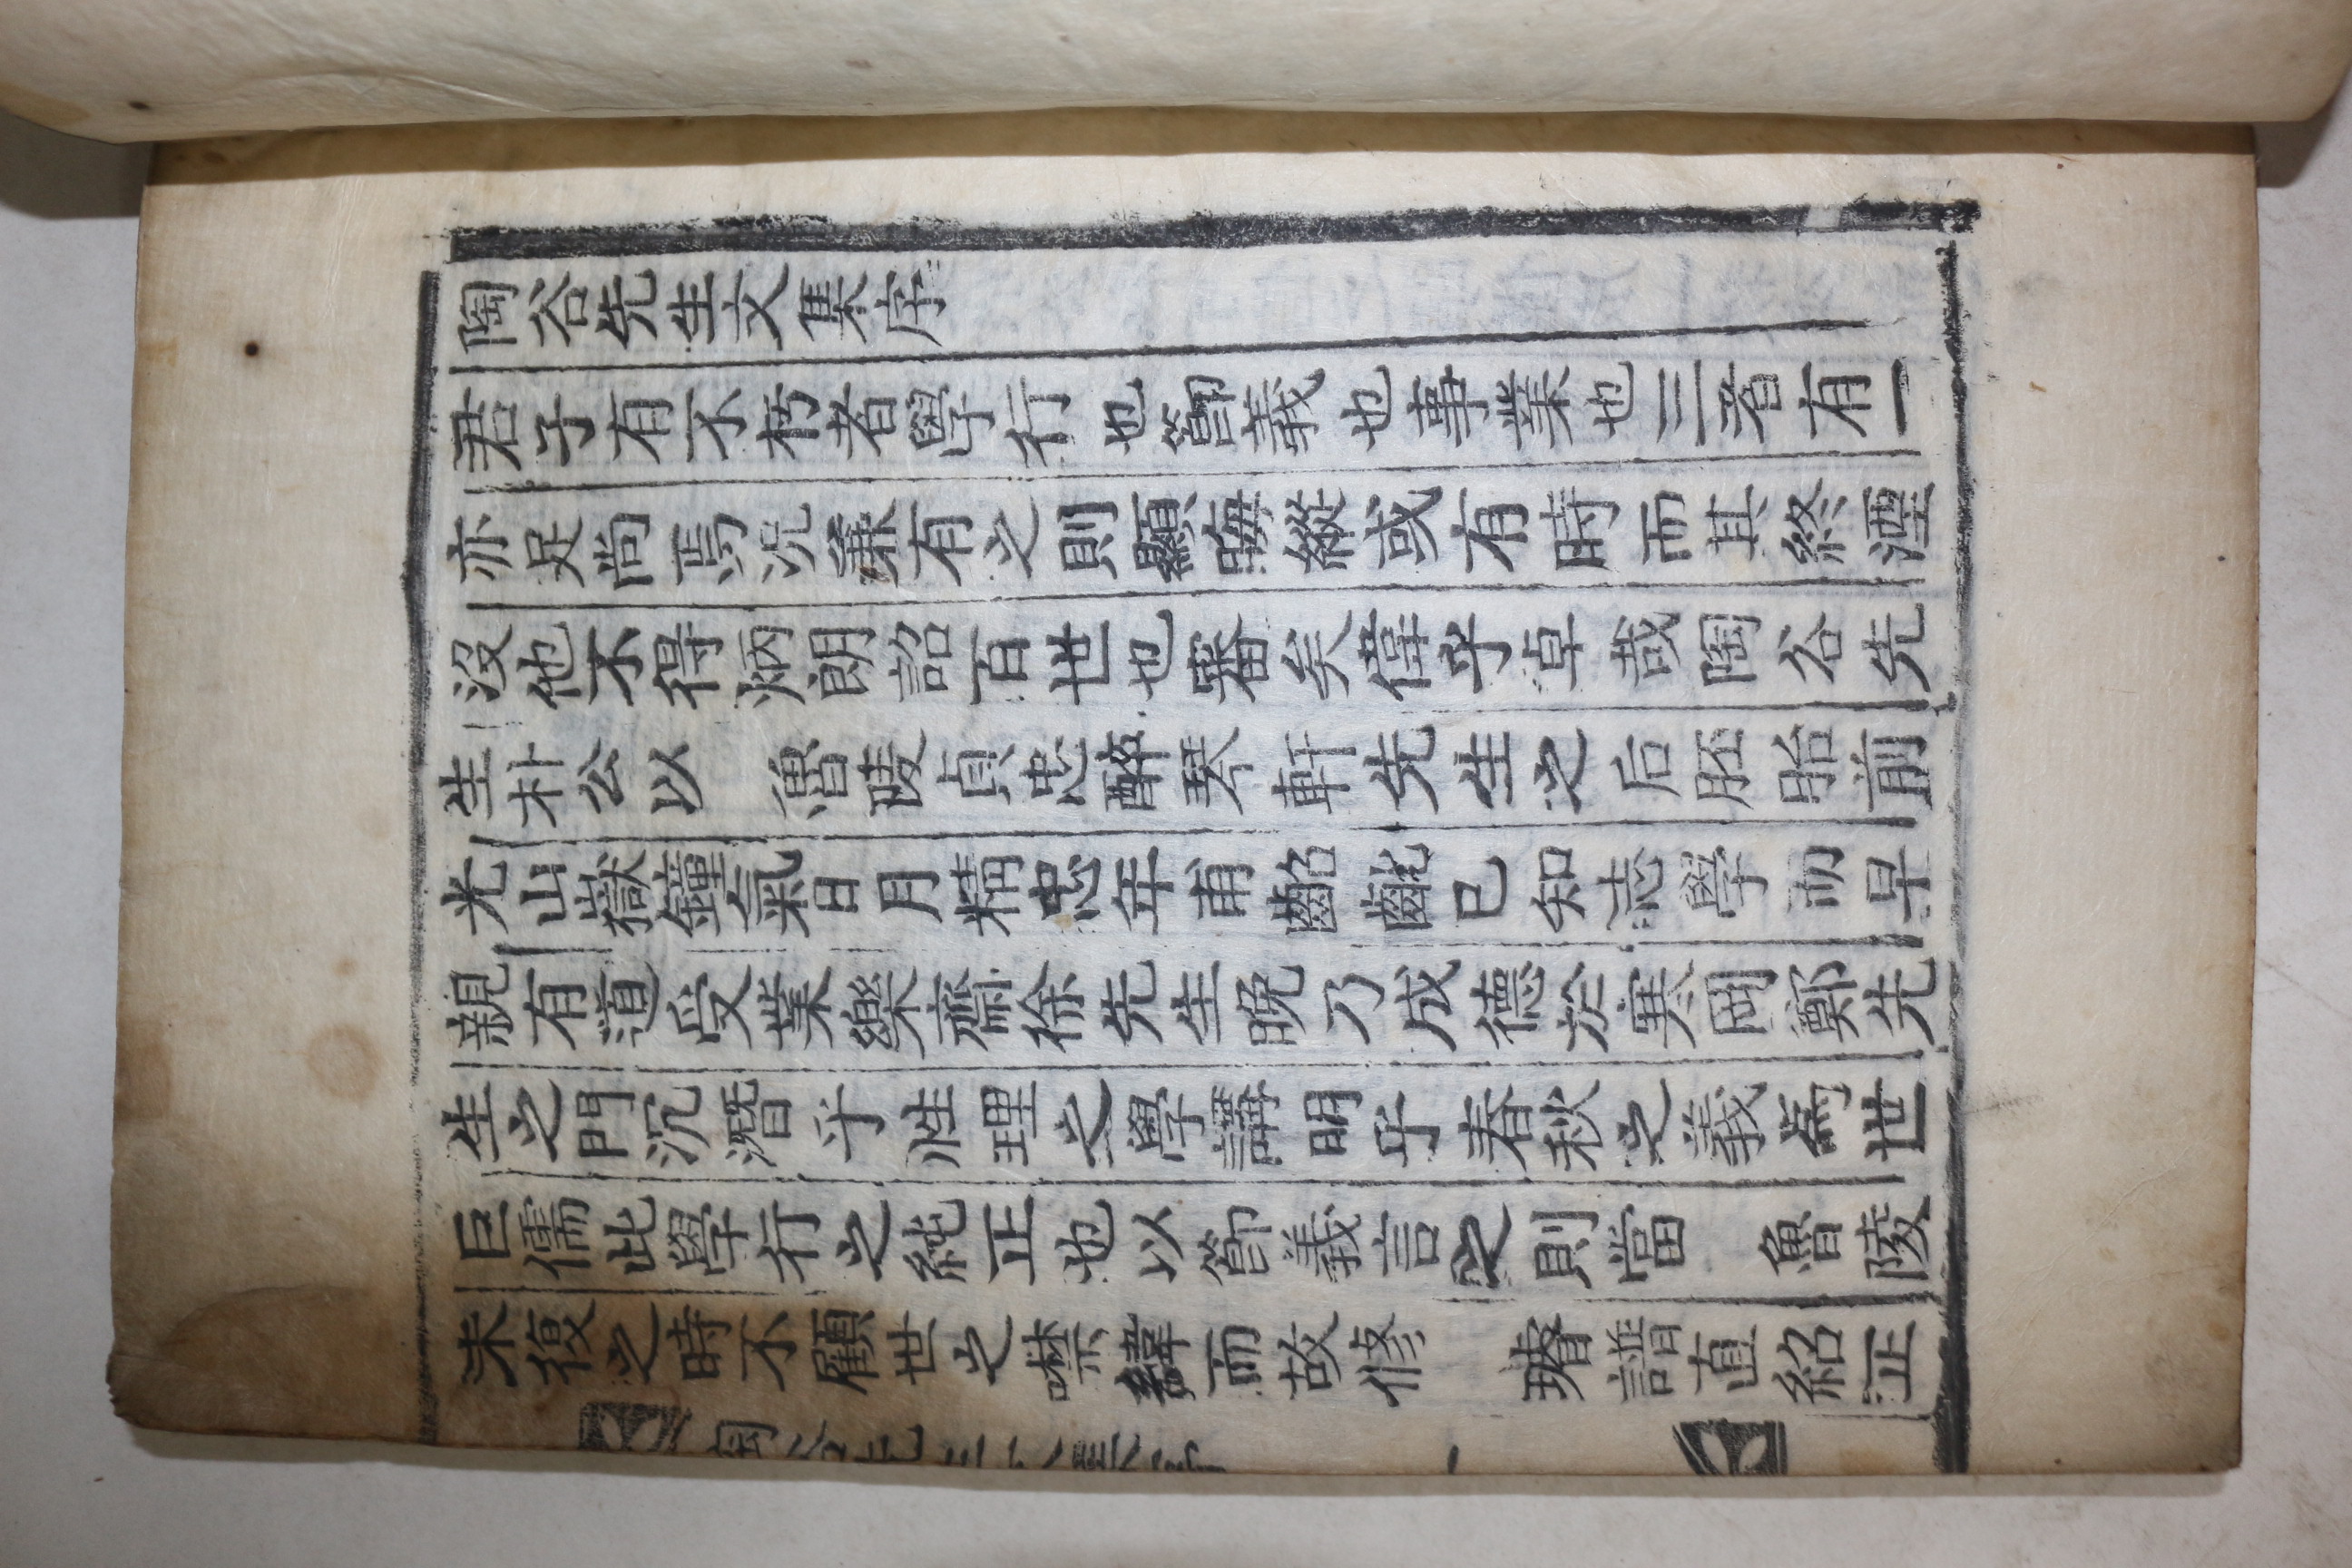 陶谷先生文集序
君子有不朽者學行也節義也事業也三者有一
亦足尙焉况兼有之則顯晦縱或有時而其終湮
沒他不得炳朗詔百世也審矣偉乎卓哉陶谷先
生朴公以 魯陵貞忠醉琴軒先生之后胚胎前
光山嶽鍾氣日月精忠年甫齠齔已知志學而早
親有道受業樂齋徐先生晩乃成德於寒岡鄭先
生之門沉潛乎性理之學講明乎春秋之義爲世
巨儒此學行之純正也以節義言之則當 魯陵
未復之時不顧世之禁諱而故修 璿譜直紹正
陶谷先生文集序